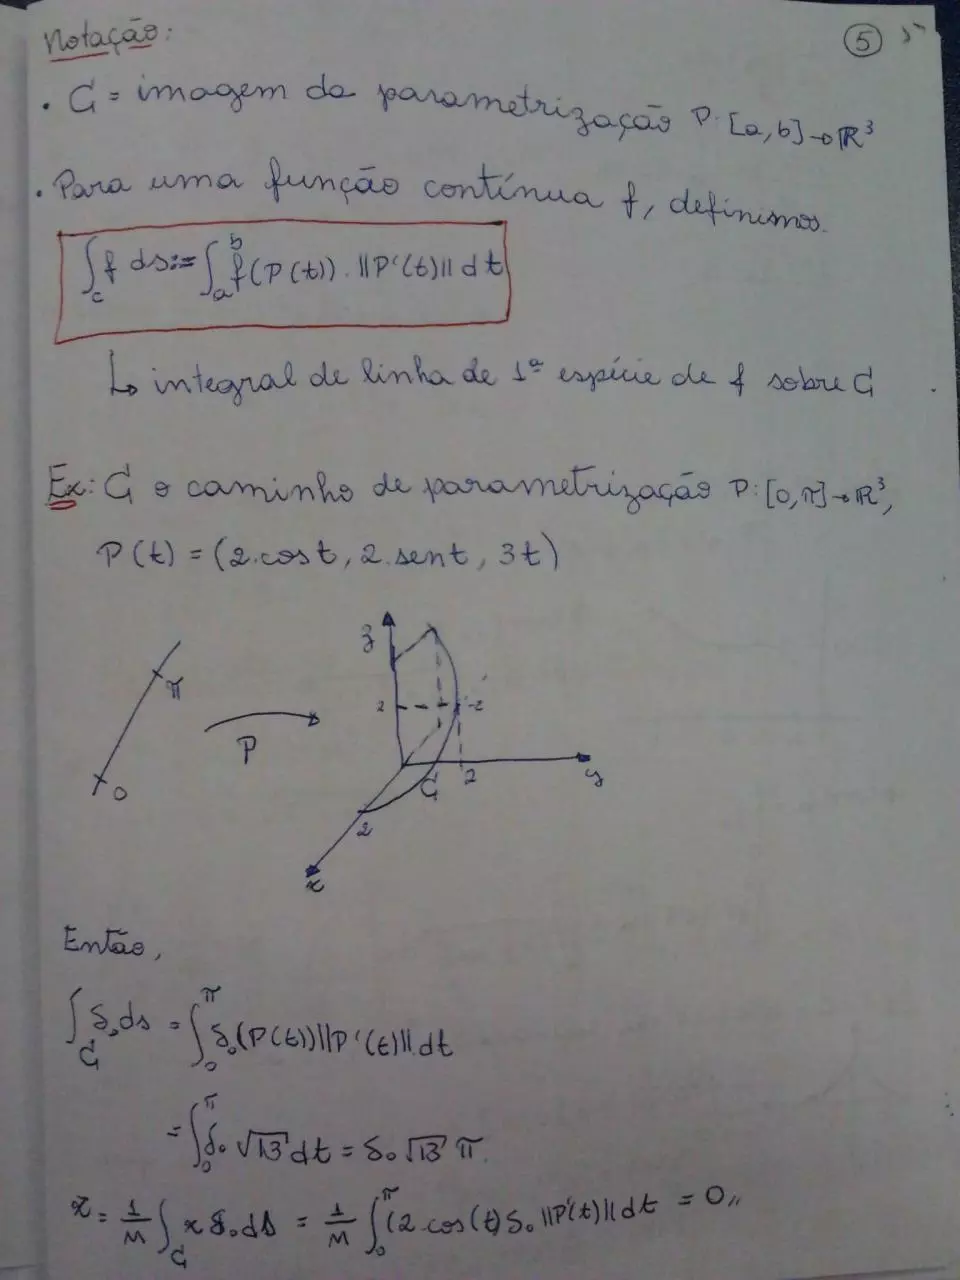 Notação: 5
• C = imagem da parametrização P: [a,b] → ℝ³
• Para uma função contínua f, definimos.
∫_C f ds := ∫_a^b f(P(t)). ||P'(t)|| dt
↳ integral de linha de 1ª espécie de f sobre C
Ex: C o caminho de parametrização P: [0,π] → ℝ³,
P(t) = (2.cos t, 2.sen t, 3t)
z
π
2
P
0
C 2 y
2
x
Então,
∫_C δ₀ ds = ∫_0^π δ₀(P(t)) ||P'(t)|| dt
= ∫_0^π δ₀ √13 dt = δ₀ √13 π.
x̄ = 1/M ∫_C x δ₀ ds = 1/M ∫_0^π (2.cos(t) δ₀ ||P'(t)|| dt = 0,,